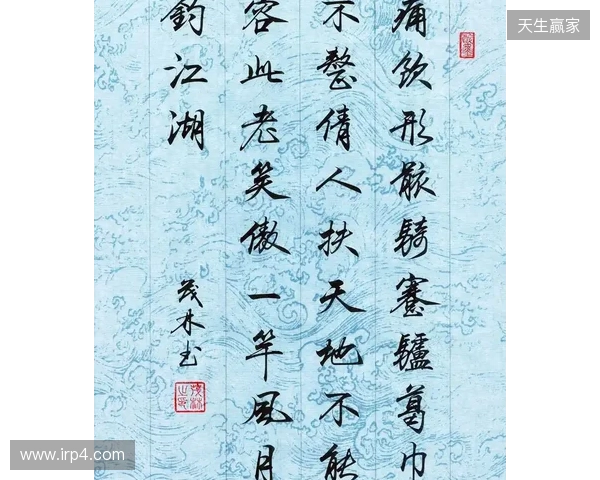 天生赢家
痛飲形骸騎蹇驢葛巾
不整倩人扶天地不能
容此老笑傲一竿風月
釣江湖
茂林书
www.irp4.com